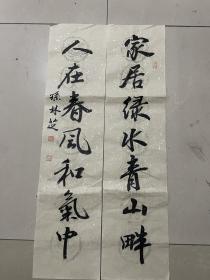 家居绿水青山畔
人在春风和氣中